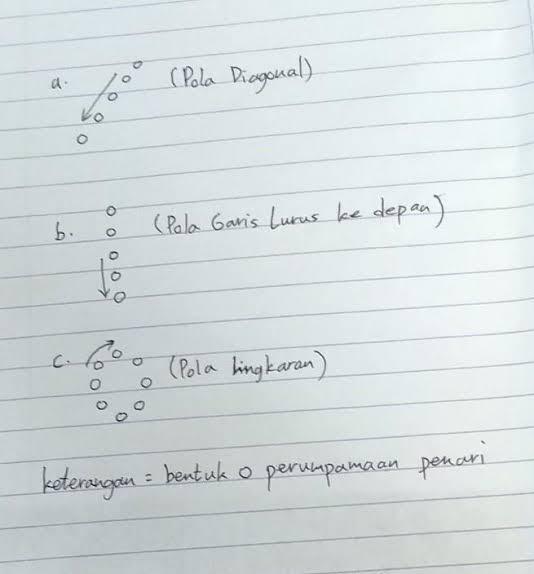 a. (Pola Diagonal)
b. (Pola Garis Lurus ke depan)
c. (Pola lingkaran)
keterangan = bentuk O perumpamaan penari